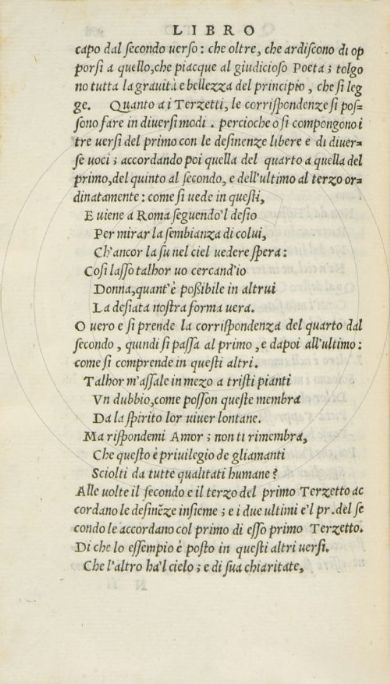 LIBRO
capo dal secondo uerso: che oltre, che ardiscono di op
porsi a quello, che piacque al giudicioso Poeta; tolgo
no tutta la grauità e bellezza del principio, che si leg
ge. Quanto a i Terzetti, le corrispondenze si pos-
sono fare in diuersi modi. percioche o si compongono i
tre uersi del primo con le desinenze libere e di diuer-
se uoci; accordando poi quella del quarto a quella del
primo, del quinto al secondo, e dell'ultimo al terzo or-
dinatamente: come si uede in questi,
E uiene a Roma seguendo'l desio
Per mirar la sembianza di colui,
Ch'ancor la su nel ciel uedere spera:
Cosi lasso talhor uo cercand'io
Donna, quant'è poßibile in altrui
La desiata uostra forma uera.
O uero e si prende la corrispondenza del quarto dal
secondo, quindi si passa al primo, e dapoi all'ultimo:
come si comprende in questi altri.
Talhor m'assale in mezo a tristi pianti
Vn dubbio, come posson queste membra
Da la spirito lor uiuer lontane.
Ma rispondemi Amor; non ti rimembra,
Che questo è priuilegio de gliamanti
Sciolti da tutte qualitati humane?
Alle uolte il secondo e il terzo del primo Terzetto ac
cordano le desinēze insieme; e i due ultimi e'l pr. del se
condo le accordano col primo di esso primo Terzetto.
Di che lo essempio è posto in questi altri uersi.
Che l'altro ha'l cielo; e di sua chiaritate,